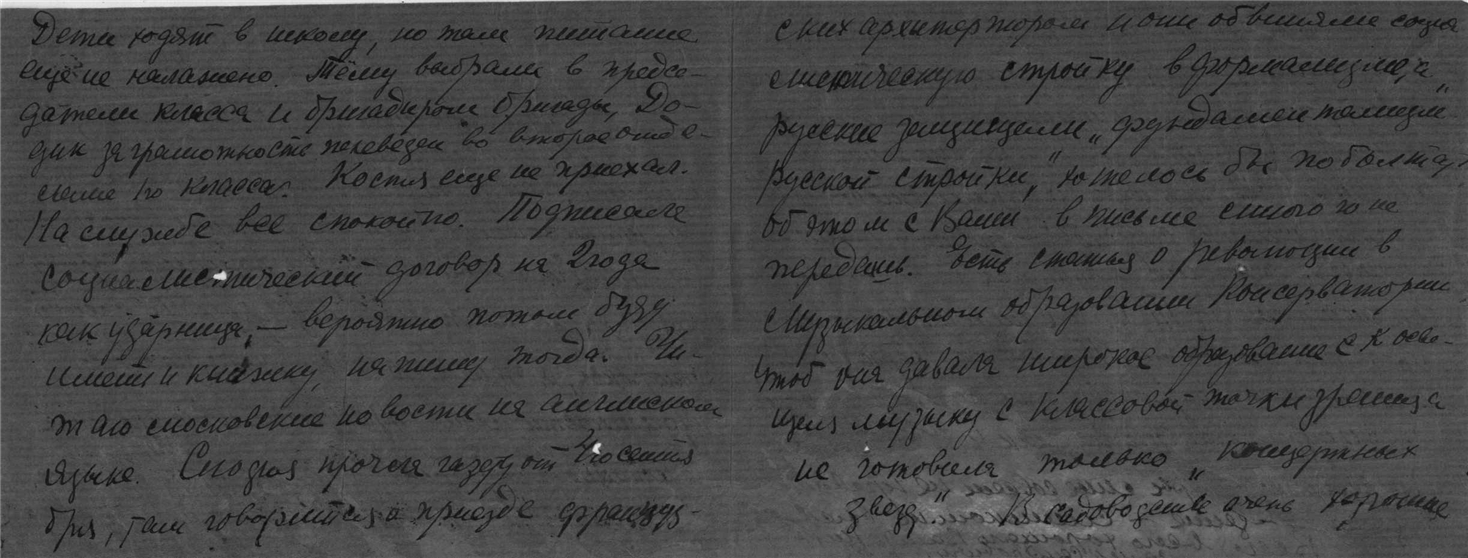 Дети ходят в школу, но там питание
ещё не налажено. Тёму выбрали в предсе-
датели класса и бригадиром бригады, До-
дик за грамотность переведен во второе отде-
ление 1го класса. Костя еще не приехал.
На службе все спокойно. Подписала
социалистический договор на 2 года
как ударница, — вероятно потом буду
иметь и книжку, напишу тогда. Чи-
таю московские новости на английском
языке. Сегодня прочла газету от 4го сентя
бря, там говорится о приезде француз-
ских архитекторов и они обвиняли социа
листическую стройку в формализме, а
русские защищали „фундаментализм
русской стройки", хотелось бы поболтать
об этом с Вами в письме много го не
передашь. Есть статья о революции в
музыкальном образовании Консерватории
чтоб она давала широкое образование с
музыку с классовой точки зрения а
не готовила только „концертных
звезд". О садоводстве очень хорошие